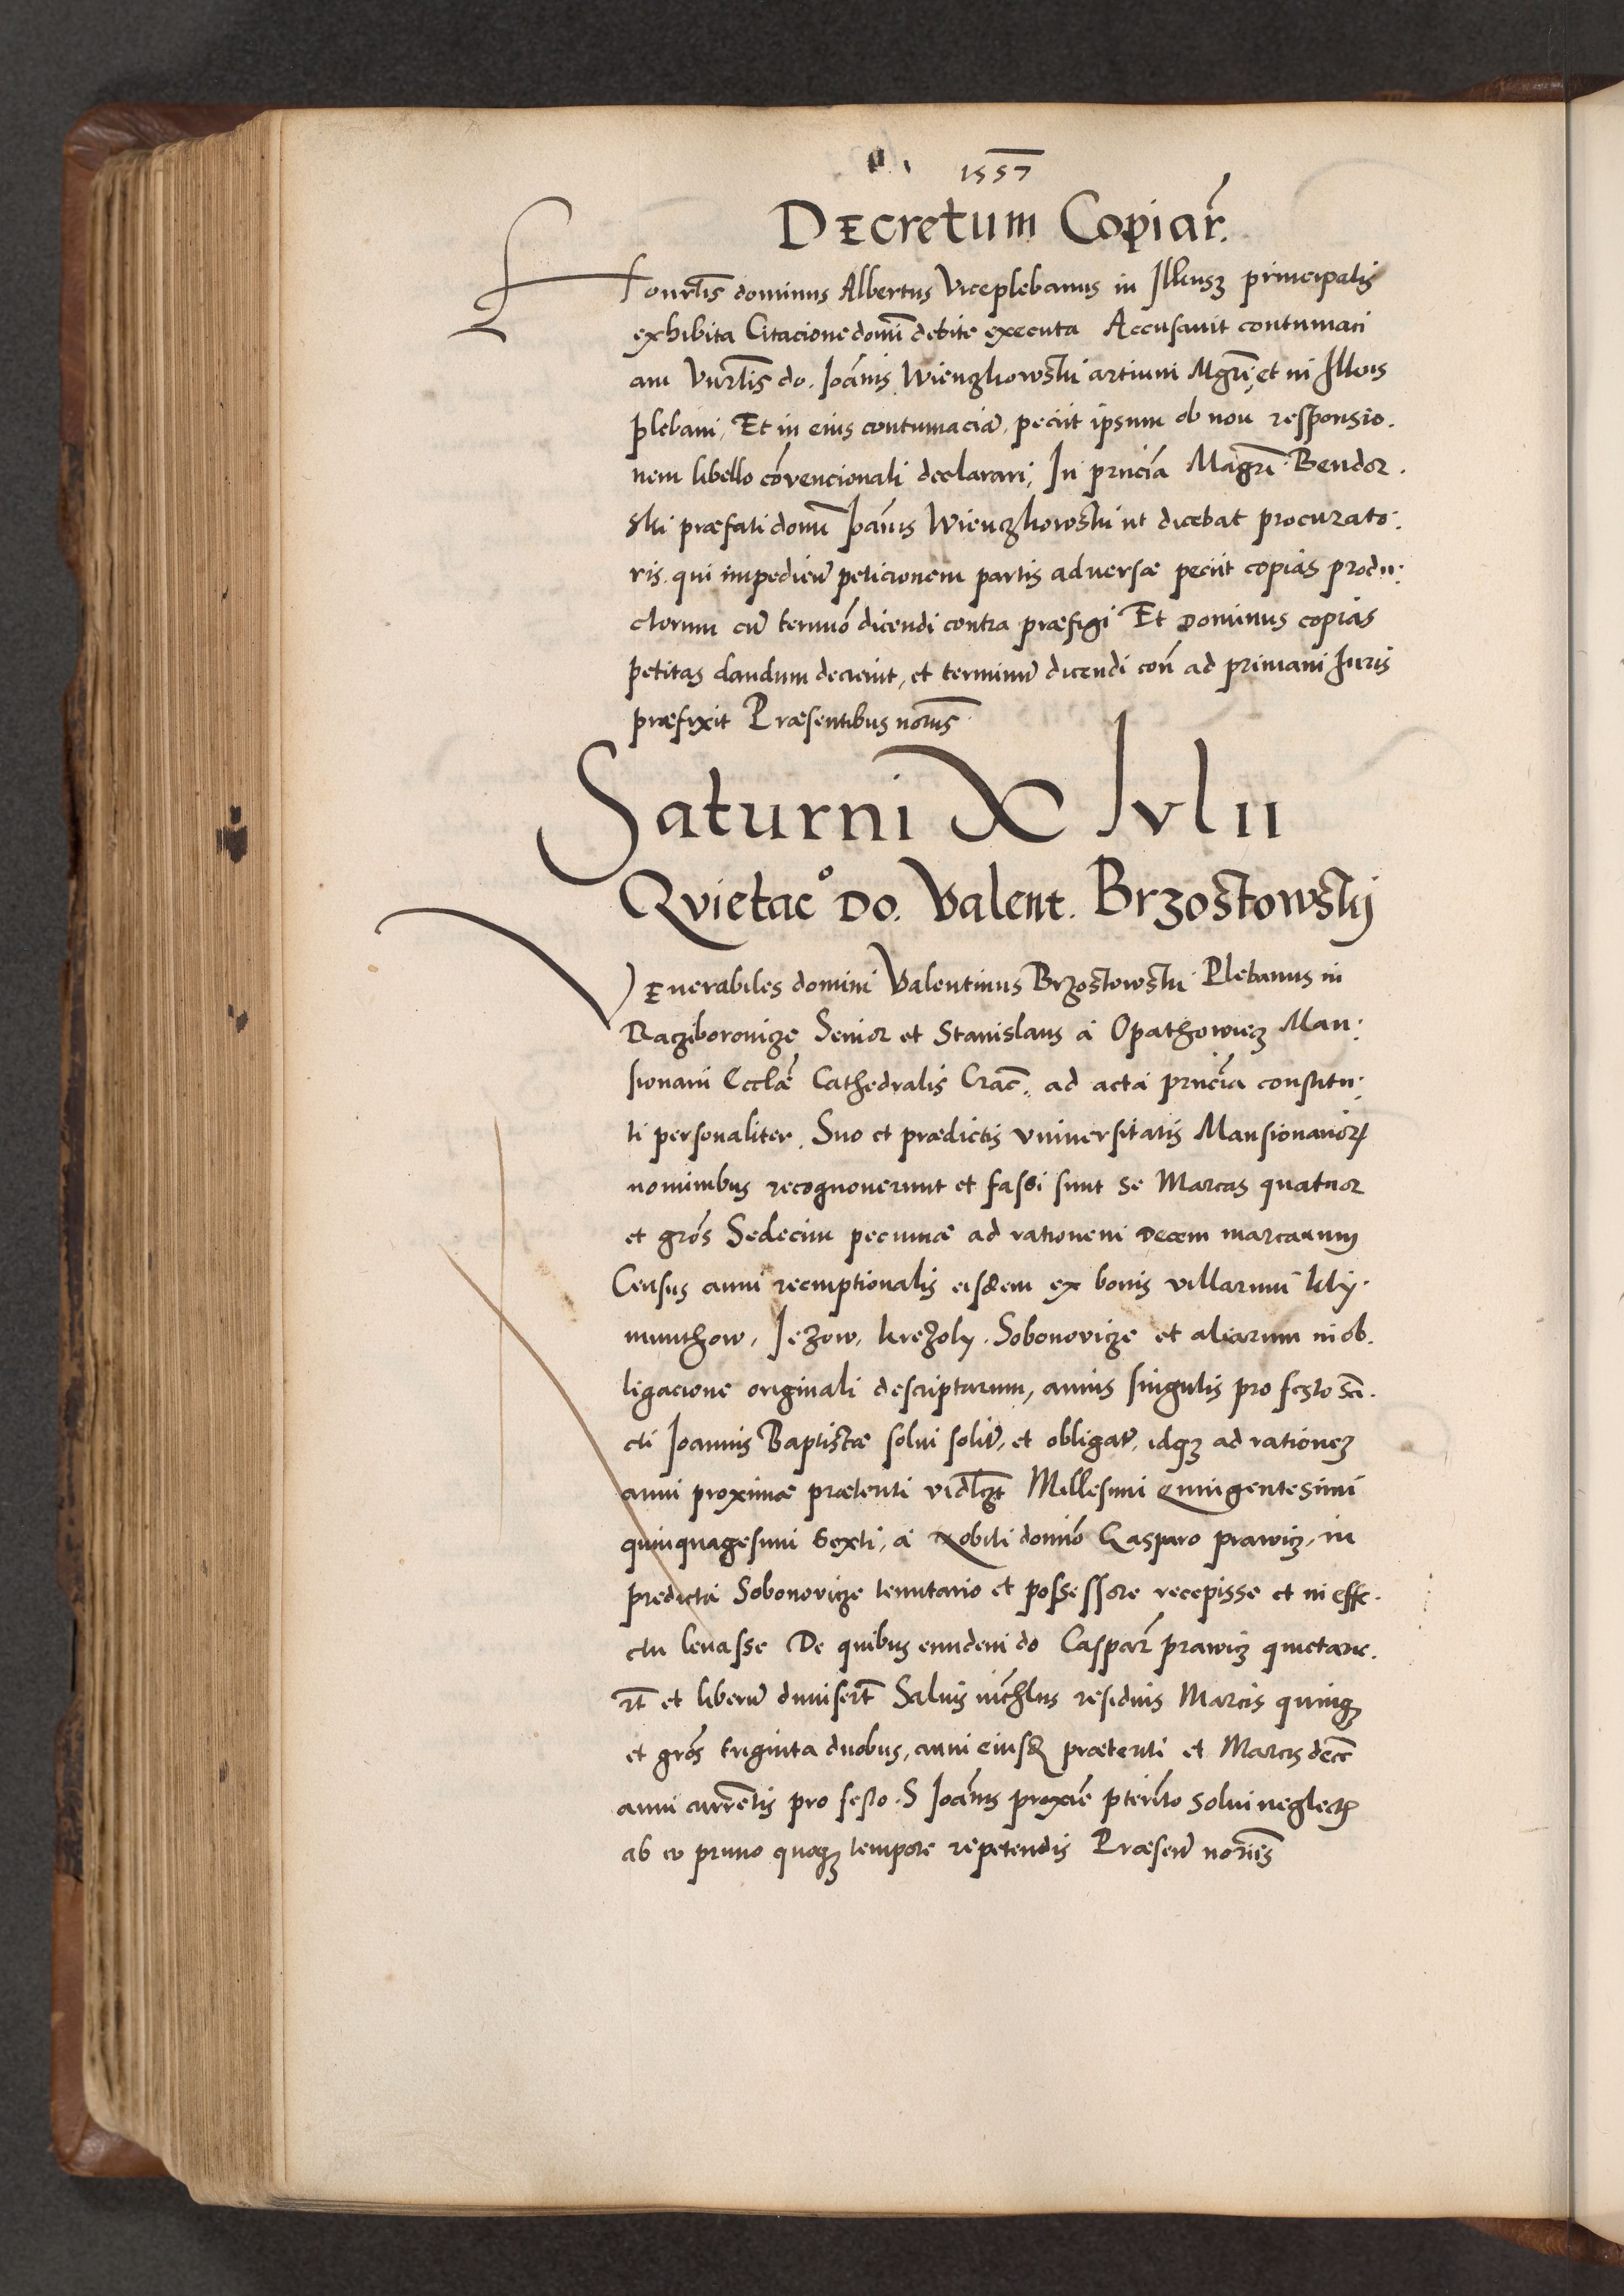 1557
Decretum Copiar.
Honrlis dominus Albertus Viceplebanus in Illkusz principalis
exhibita Citacione domi debite executa Accusavit contumaci
am Vnrlis do. Joanis Wienzkowski artium Mgri et in Illkus
plebani, Et in eius contumacia, peciit ipsum ob non responsio.
nem libello convencionali declarari, In pntia Magri Bendor.
ski præfati domi Joanis Wienzkowski ut dicebat procurato:
ris. qui impedien peticionem partis adversæ peciit copias produ:
ctorum cu termio dicendi contra præfigi Et Dominus copias
petitas dandum decrevit, et terminu dicendi con ad primam Juris
præfixit Præsentibus notus
Saturni X Ivlii
Qvietac° Do. Valent. Brzostowskij
Venerabiles domini Valentinus Brzostowski Plebanus in
Racziborovicze Senior et Stanislaus a Opathowiecz Man:
sionarii Eccliæ Cathedralis Crac. ad acta pntia constitu:
ti personaliter. Suo et prædictis vniversitatis Mansionarior
nominibus recognoverunt et fassi sunt se Marcas quatuor
et gros Sedecim pecuniæ ad rationem Decem marcarum
Census anni reemptionalis eisdem ex bonis villarum kly.
munthow, Jezow, krezoly. Sobonovicze et aliarum in ob.
ligacione originali descriptarum, annis singulis pro festo San.
cti Joannis Baptistæ solvi solitu, et obligatu, idqz ad rationez
anni proximæ præteriti vidlzt Millesimi Quingentesimi
quinquagesimi Sexti, a Nobili domio Gasparo prawicz, in
predicta Sobonovicze tenutario et possessore recepisse et in effe.
ctu levasse De quibus eundem do Caspar prawicz quietave.
rt et liberu dimisert Salvis nichlus residuis Marcis quinqz
et gros triginta duobus, anni eiusd præteriti et Marcis dece
anni currentis pro festo. S Joanis proxie pterito solvi neglectis
ab eo primo quoqz tempore repetendis Præsen notriis